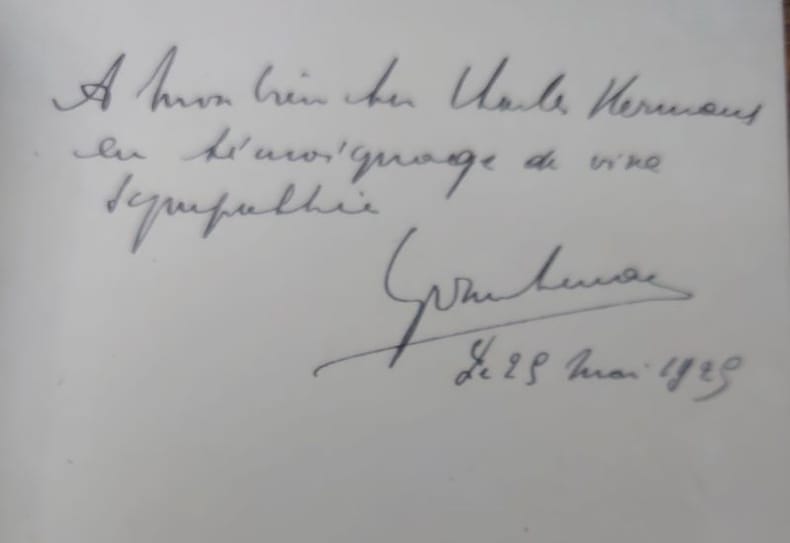 A mon bien cher Charles Hermans
en témoignage de vive
sympathie
Le 25 mai 1925